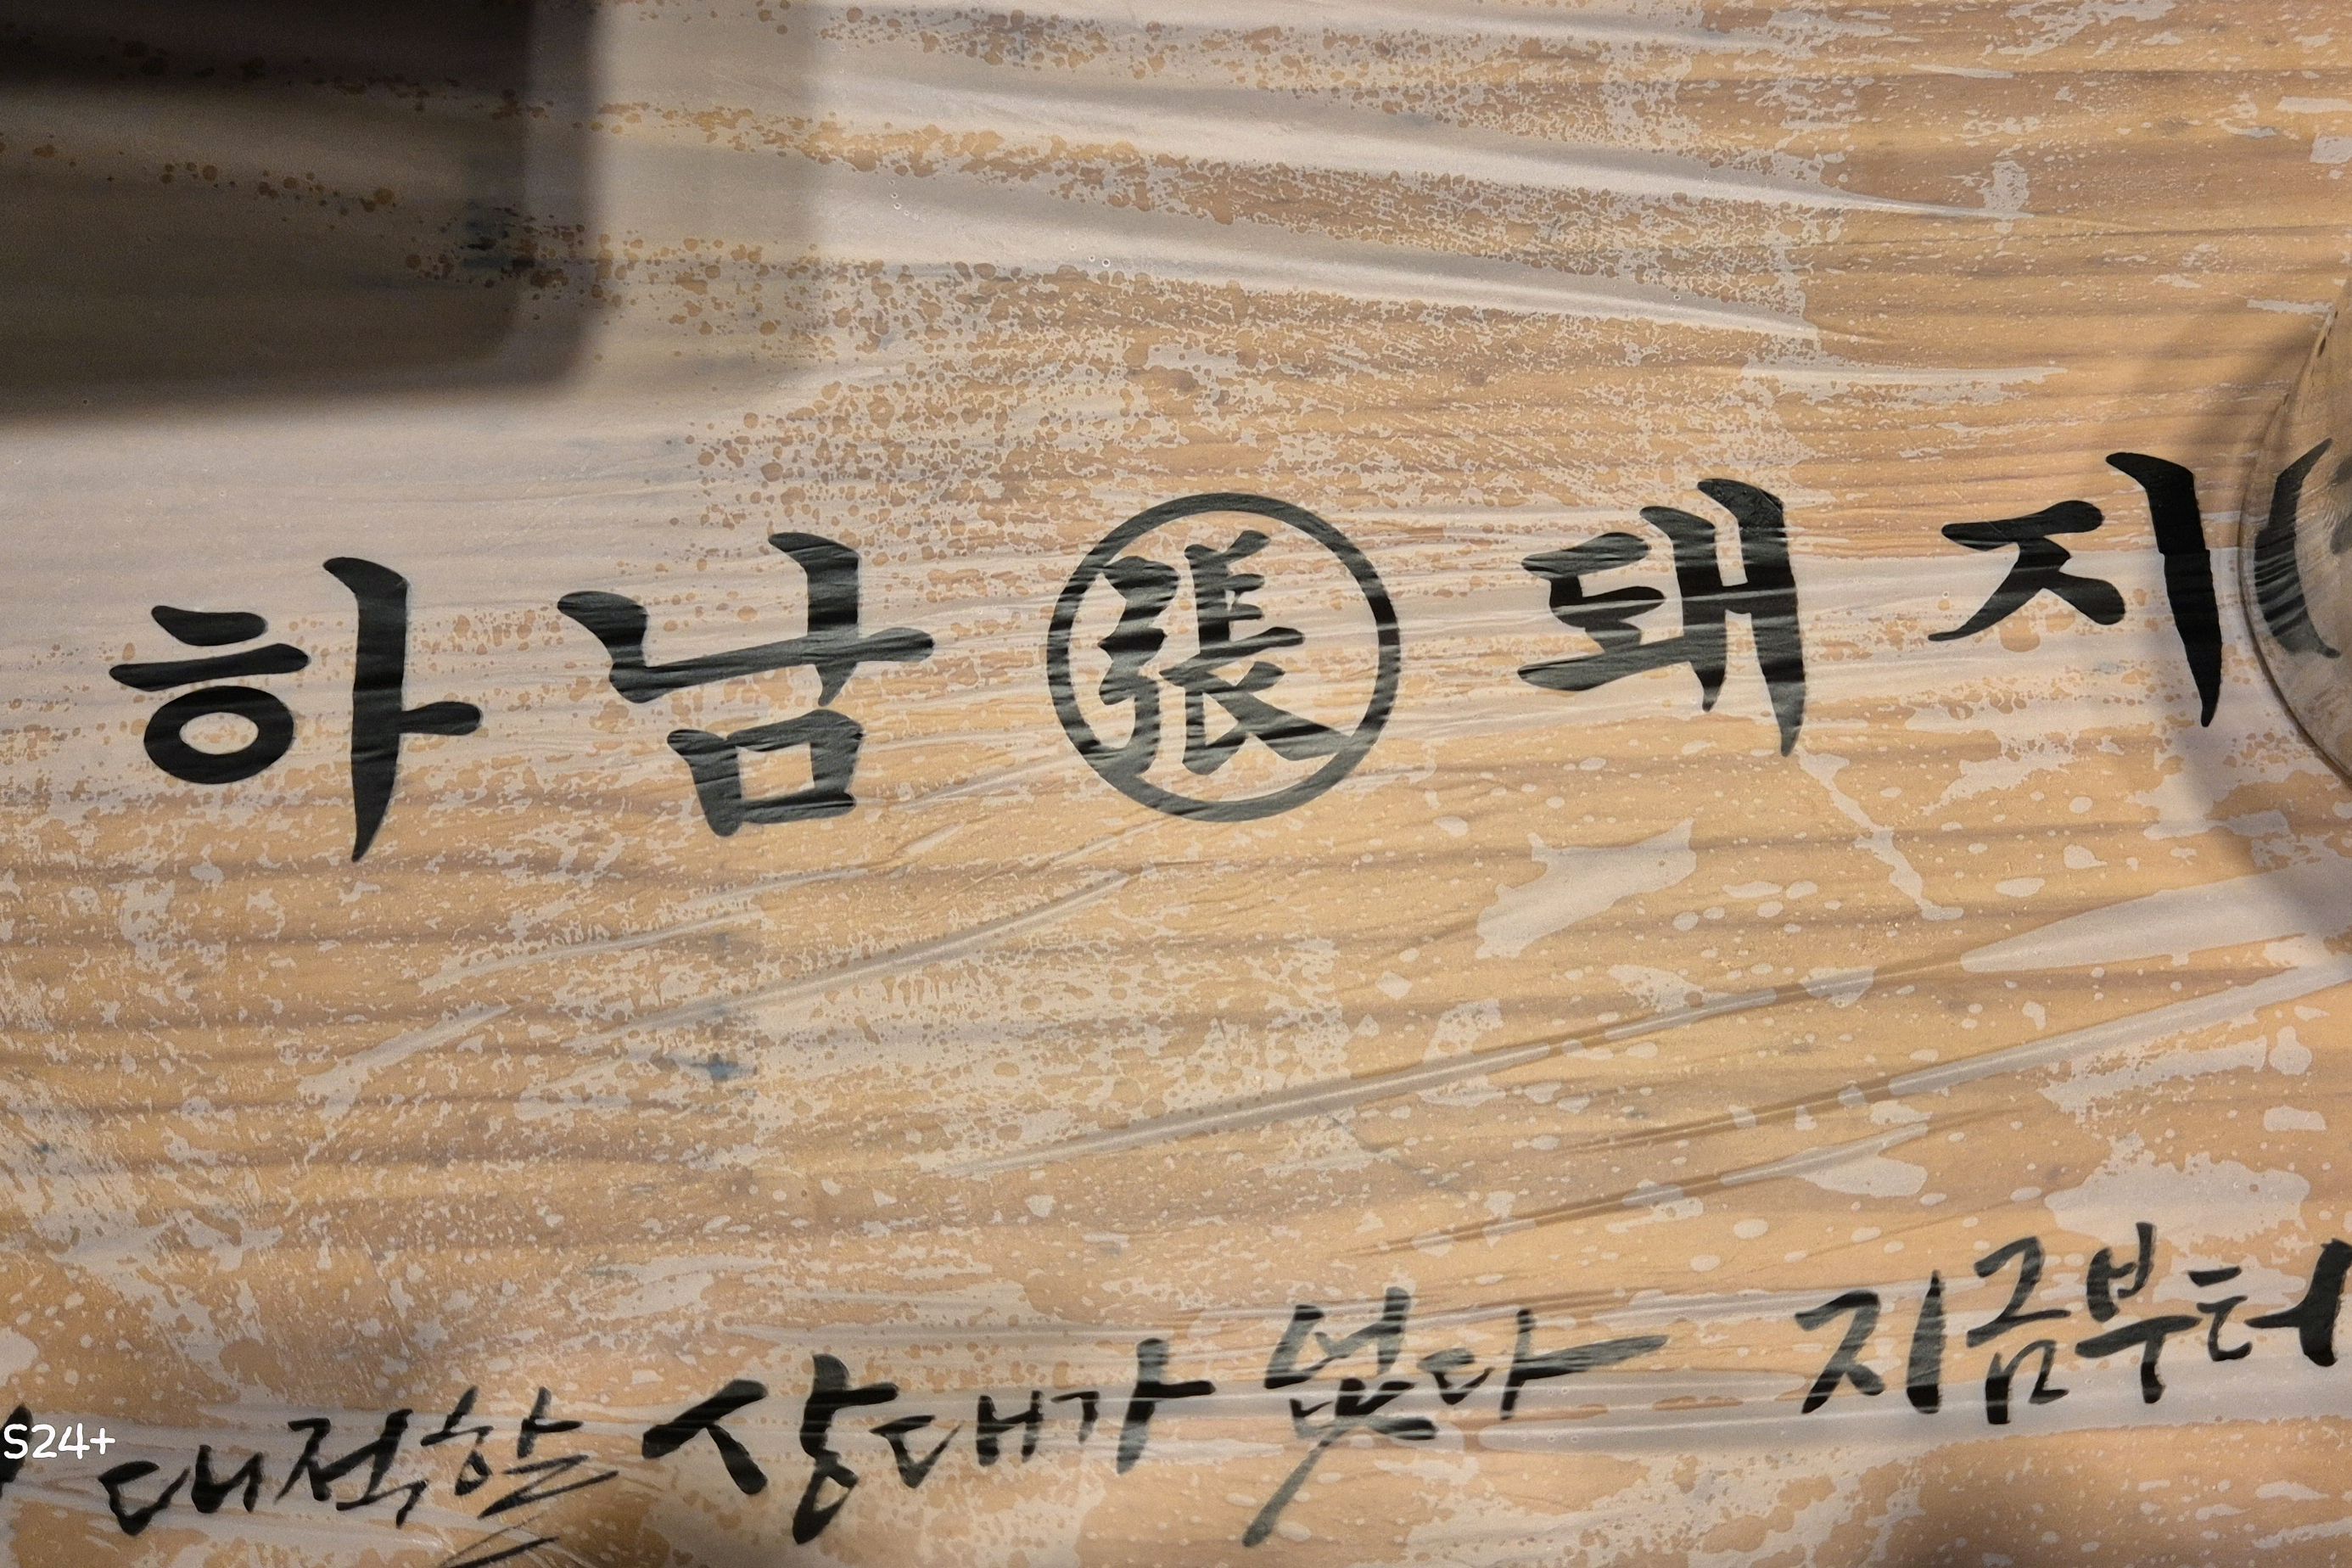 하남 張 돼지
대적할 상대가 없다 지금부터
S24+